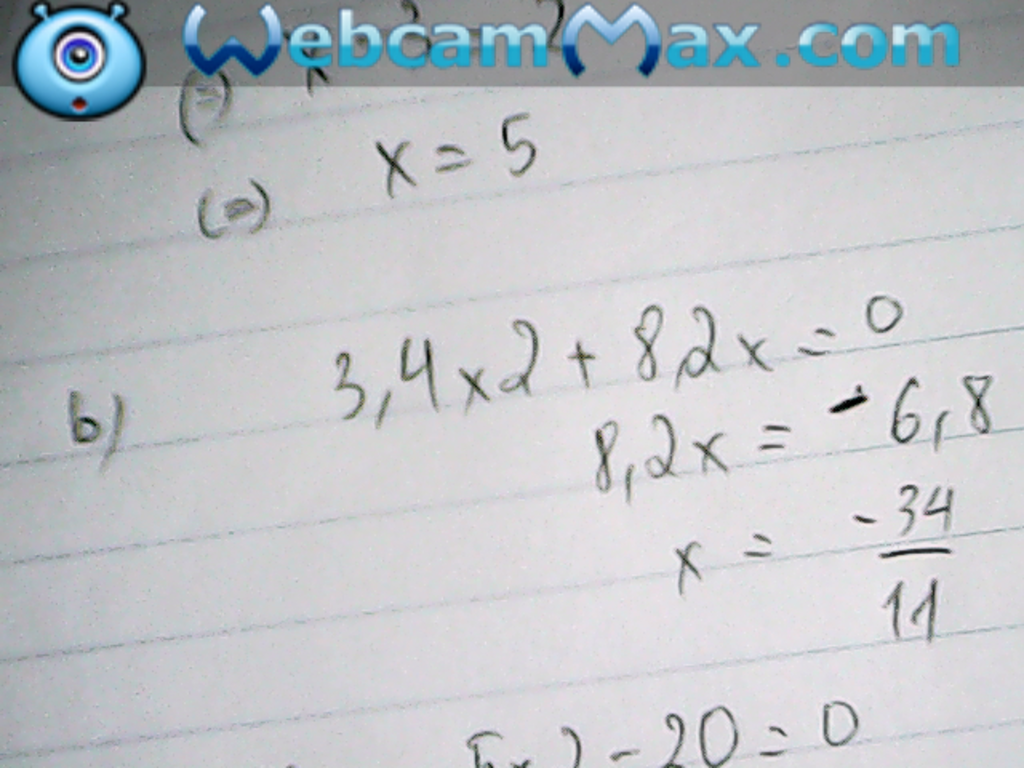 WebcamMax.com
(=)
x = 5
(=)
b) 3,4x2 + 8,2x = 0
8,2x = -6,8
x = -34
11
5x2 - 20 = 0